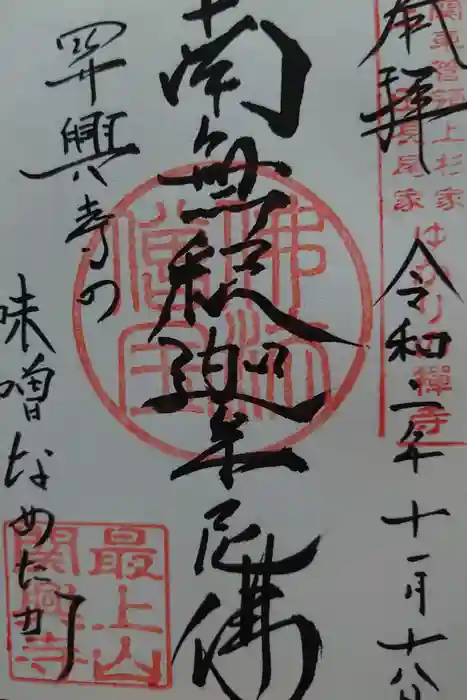 奉拝
令和二年十一月十八
関東管領上杉家
長尾家ゆかりの禅寺
南無釈迦牟尼佛
佛法僧宝
関興寺の
味噌なめたか
最上山
関興寺